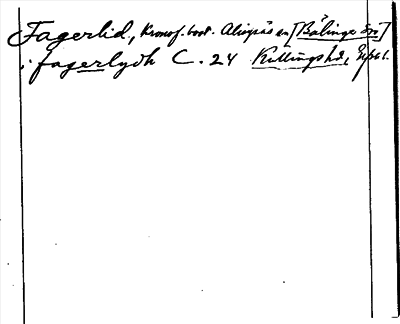 Fagerlid, kronof. bost. Alvsjäs en [Bälinge sn]
i fagerlydh C. 24 Killingshd, Uppl.